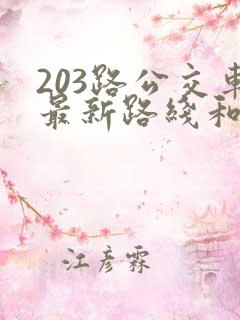 203路公交車
最新路綫和
江彥霖